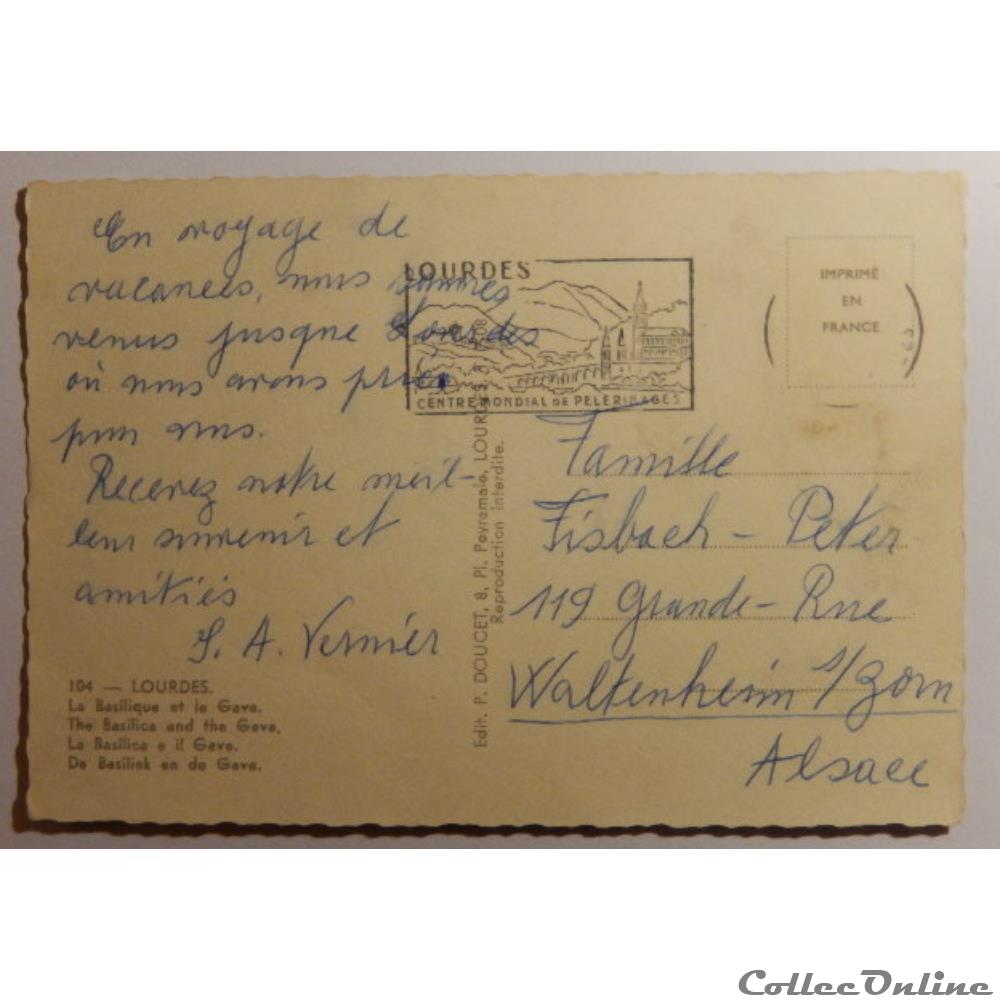 En voyage de
vacances, nous sommes
venus jusque Lourdes
où nous avons prié
pour vous.
Recevez notre meil-
leur souvenir et
amitiés
J. A. Vernier
104 — LOURDES.
La Basilique et le Gave.
The Basilica and the Gave.
La Basilica e il Gave.
De Basiliek en de Gave.
Edit. P. DOUCET, 8, Pl. Peyramale, LOURDES.
Reproduction interdite.
LOURDES
CENTRE MONDIAL DE PELERINAGES
IMPRIMÉ
EN
FRANCE
Famille
Fisbach - Peter
119 Grande-Rue
Waltenheim s/Zorn
Alsace
CollecOnline